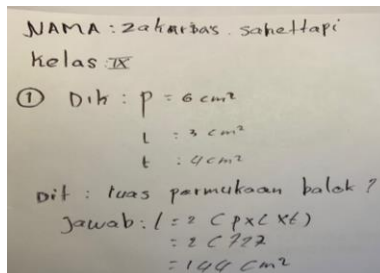 NAMA : Zakarias. sahettapi
Kelas IX
① Dik : p = 6 cm²
l = 3 cm²
t : 4 cm²
Dit : luas permukaan balok ?
Jawab : l = 2 ( p x l x t )
= 2 (
= 144 cm²